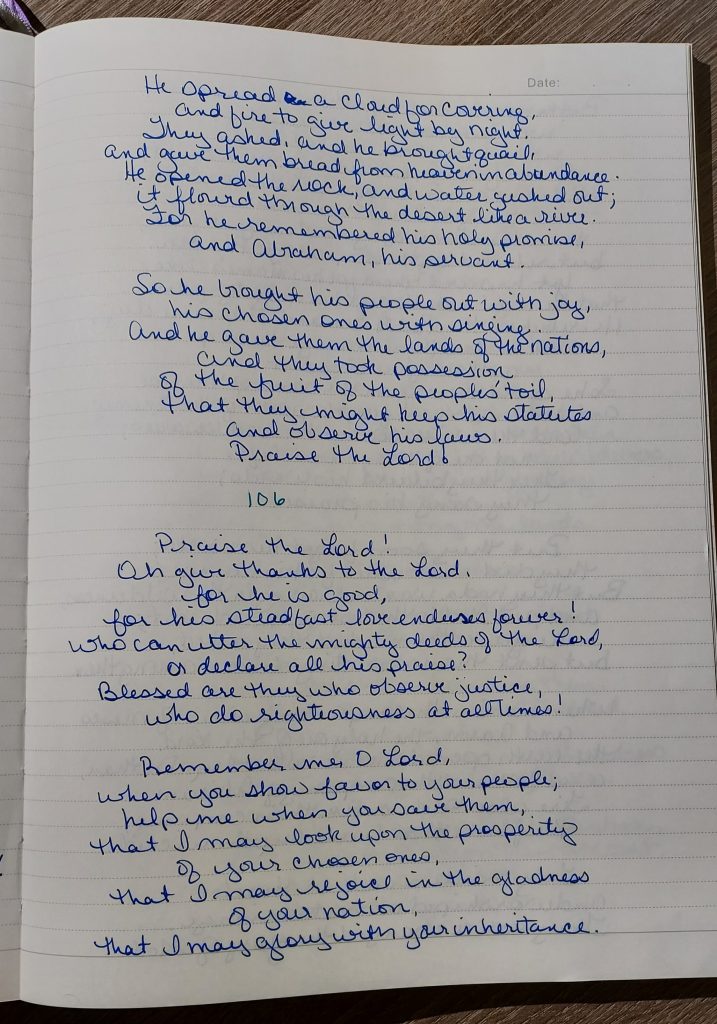 Date:
He spread a cloud for covering,
and fire to give light by night.
They asked, and he brought quail,
and gave them bread from heaven in abundance.
He opened the rock, and water gushed out;
it flowd through the desert like a river.
For he remembered his holy promise,
and Abraham, his servant.
So he brought his people out with joy,
his chosen ones with singing.
And he gave them the lands of the nations,
and they took possession
of the fruit of the peoples' toil,
that they might keep his statutes
and observe his laws.
Praise the Lord!
106
Praise the Lord!
Oh give thanks to the Lord.
for he is good,
for his steadfast love endures forever!
Who can utter the mighty deeds of the Lord,
or declare all his praise?
Blessed are they who observe justice,
who do righteousness at all times!
Remember me, O Lord,
when you show favor to your people;
help me when you save them,
that I may look upon the prosperity
of your chosen ones,
that I may rejoice in the gladness
of your nation,
that I may glory with your inheritance.